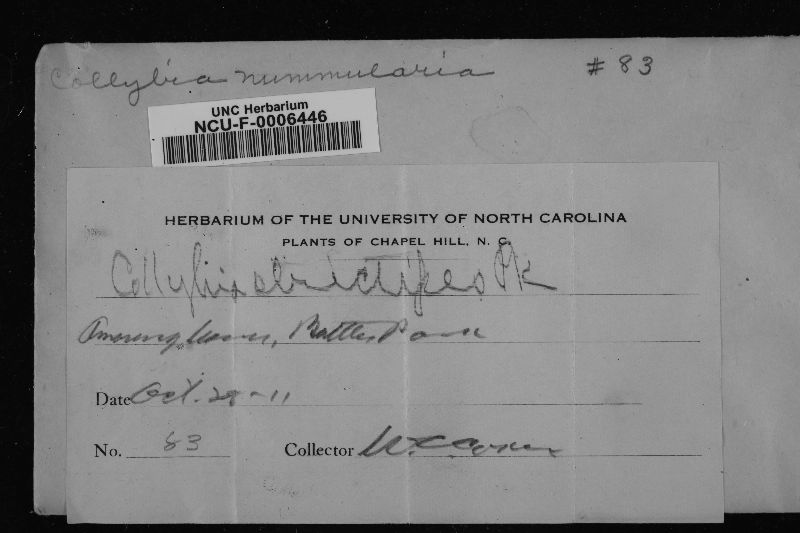 Collybia nummularia # 83
UNC Herbarium
NCU-F-0006446
HERBARIUM OF THE UNIVERSITY OF NORTH CAROLINA
PLANTS OF CHAPEL HILL, N. C.
Collybia strictipes Pk
Among leaves, Battles Park
Date Oct. 28-11
No. 83 Collector W.C. Coker